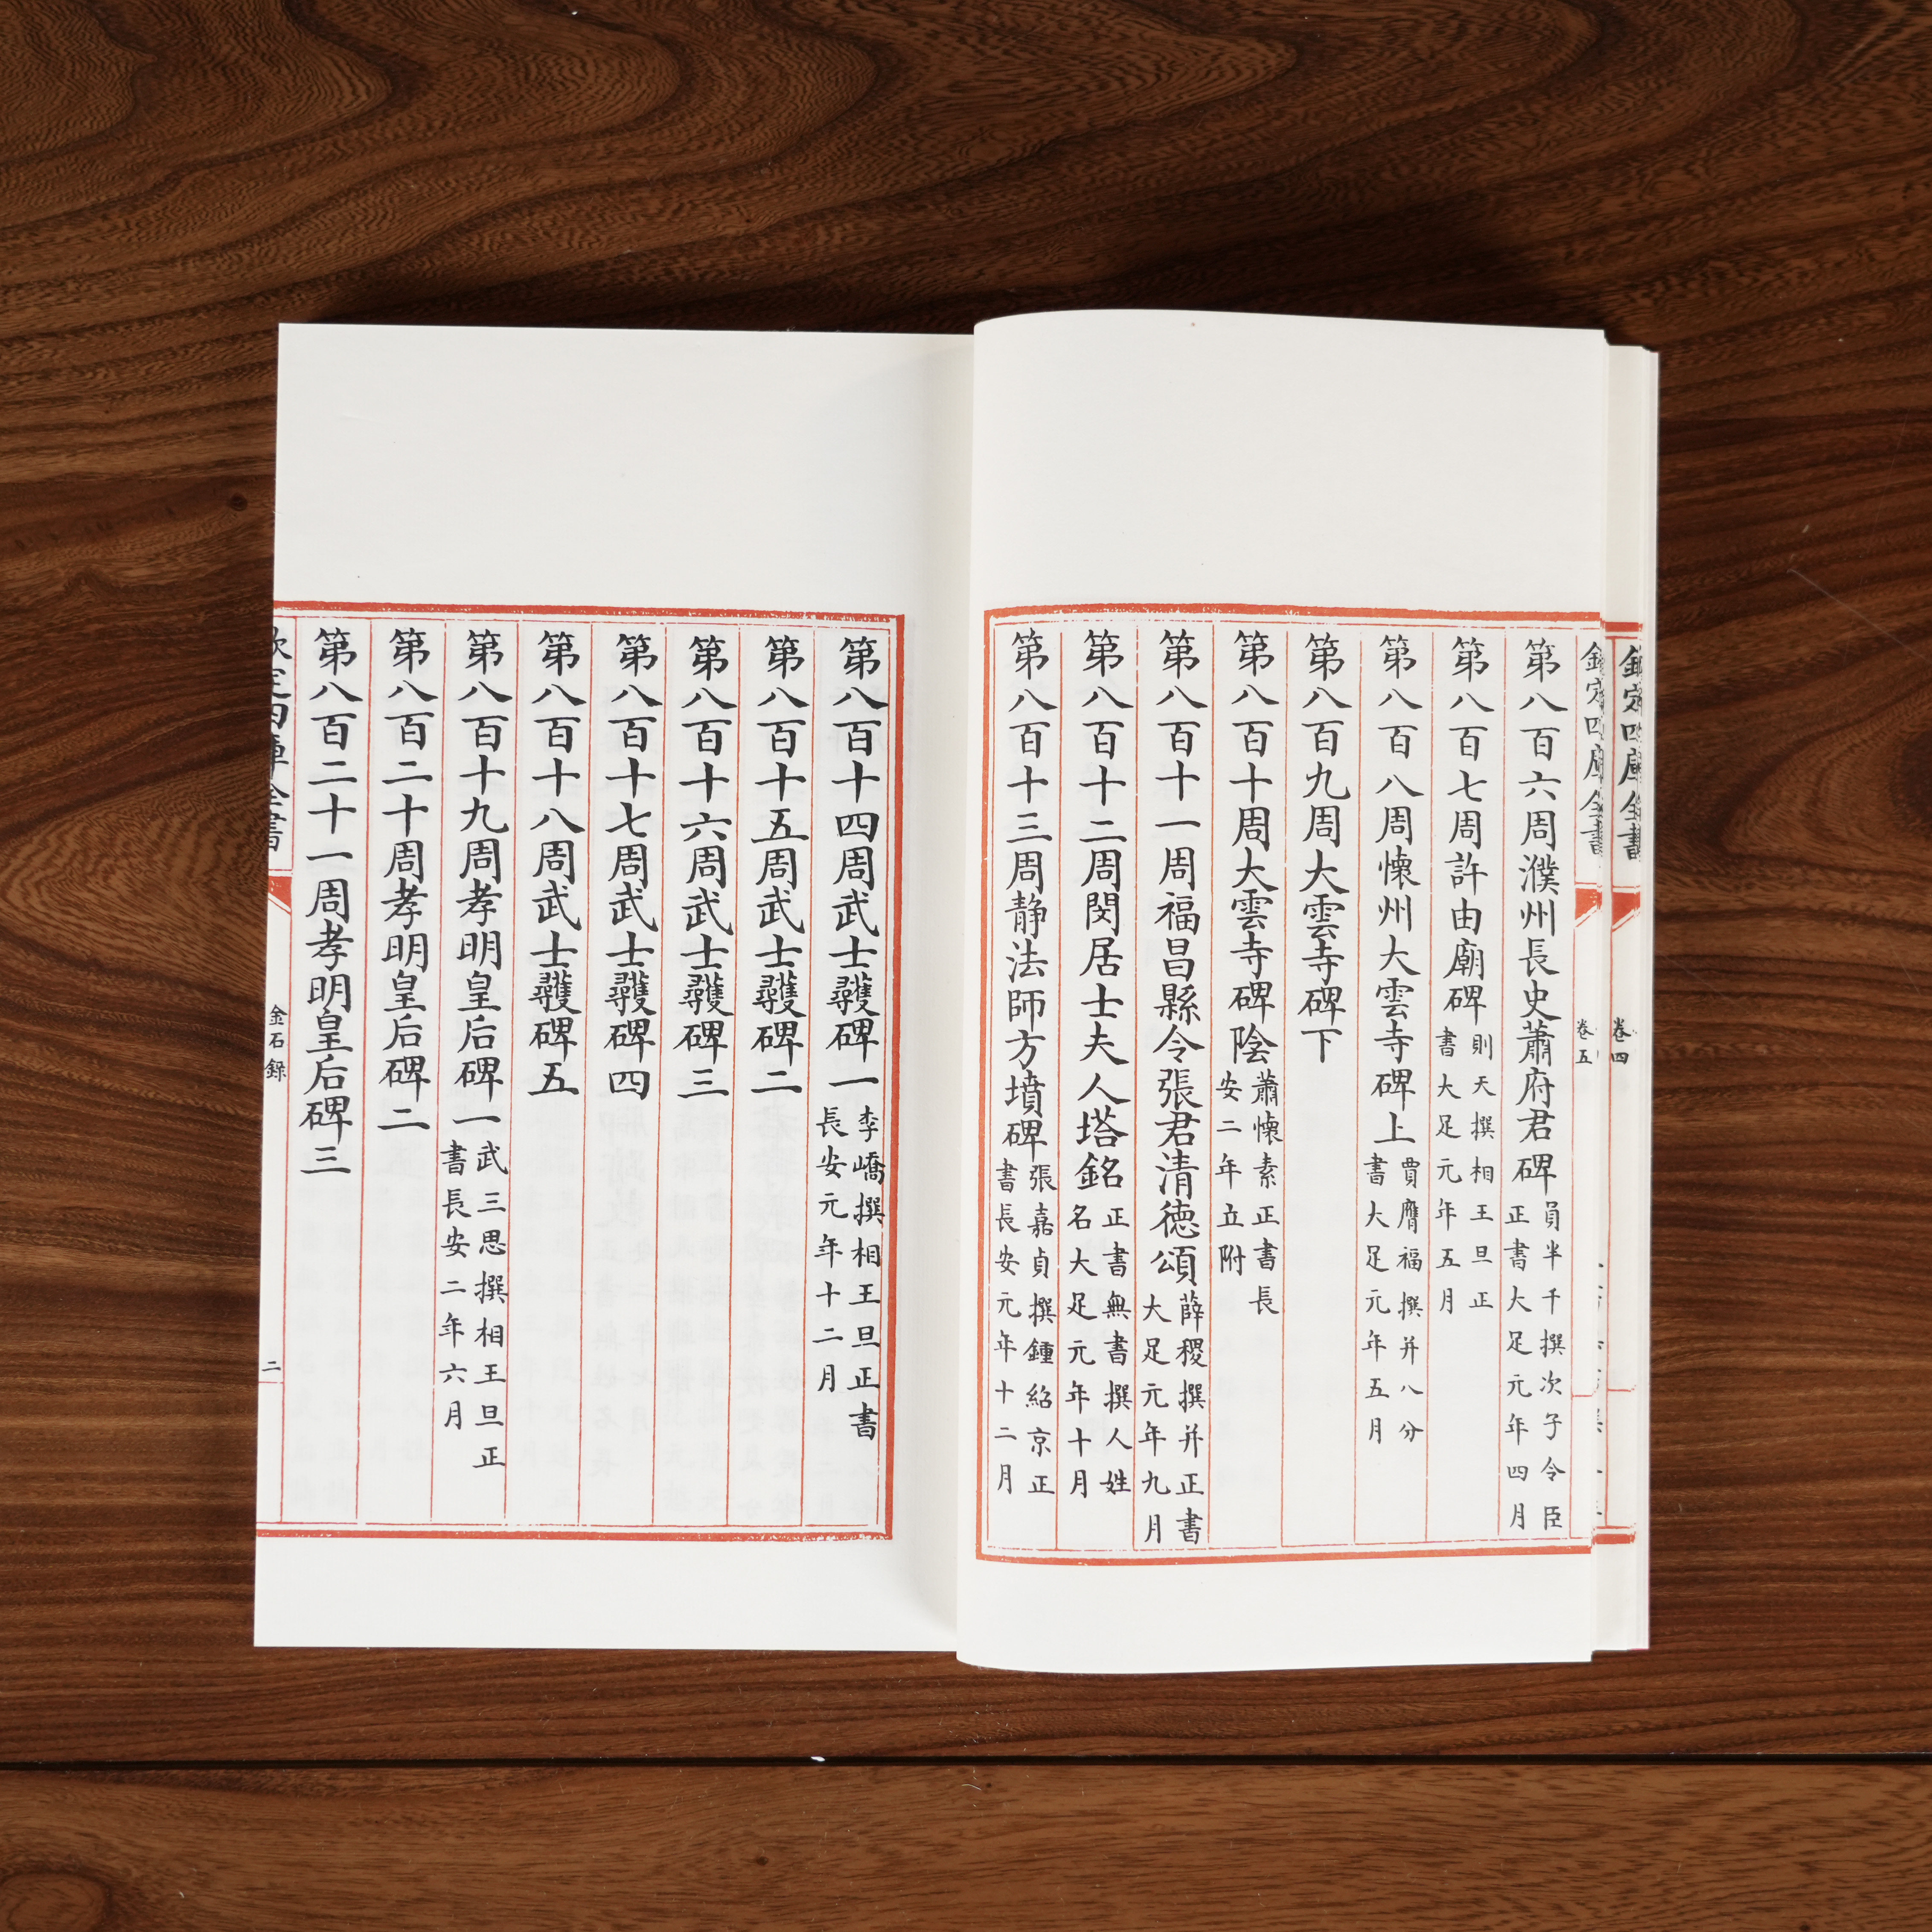 卷四
卷五
第八百六周濮州長史蕭府君碑員半千撰次子令臣
正書大足元年四月
第八百七周許由廟碑則天撰相王旦正
書大足元年五月
第八百八周懷州大雲寺碑上賈膺福撰并八分
書大足元年五月
第八百九周大雲寺碑下
第八百十周大雲寺碑陰蕭懷素正書長
安二年立附
第八百十一周福昌縣令張君清德頌薛稷撰并正書
大足元年九月
第八百十二周閔居士夫人塔銘正書無書撰人姓
名大足元年十月
第八百十三周静法師方墳碑張嘉貞撰鍾紹京正
書長安元年十二月
第八百十四周武士彠碑一李嶠撰相王旦正書
長安元年十二月
第八百十五周武士彠碑二
第八百十六周武士彠碑三
第八百十七周武士彠碑四
第八百十八周武士彠碑五
第八百十九周孝明皇后碑一武三思撰相王旦正
書長安二年六月
第八百二十周孝明皇后碑二
第八百二十一周孝明皇后碑三
金石錄
二